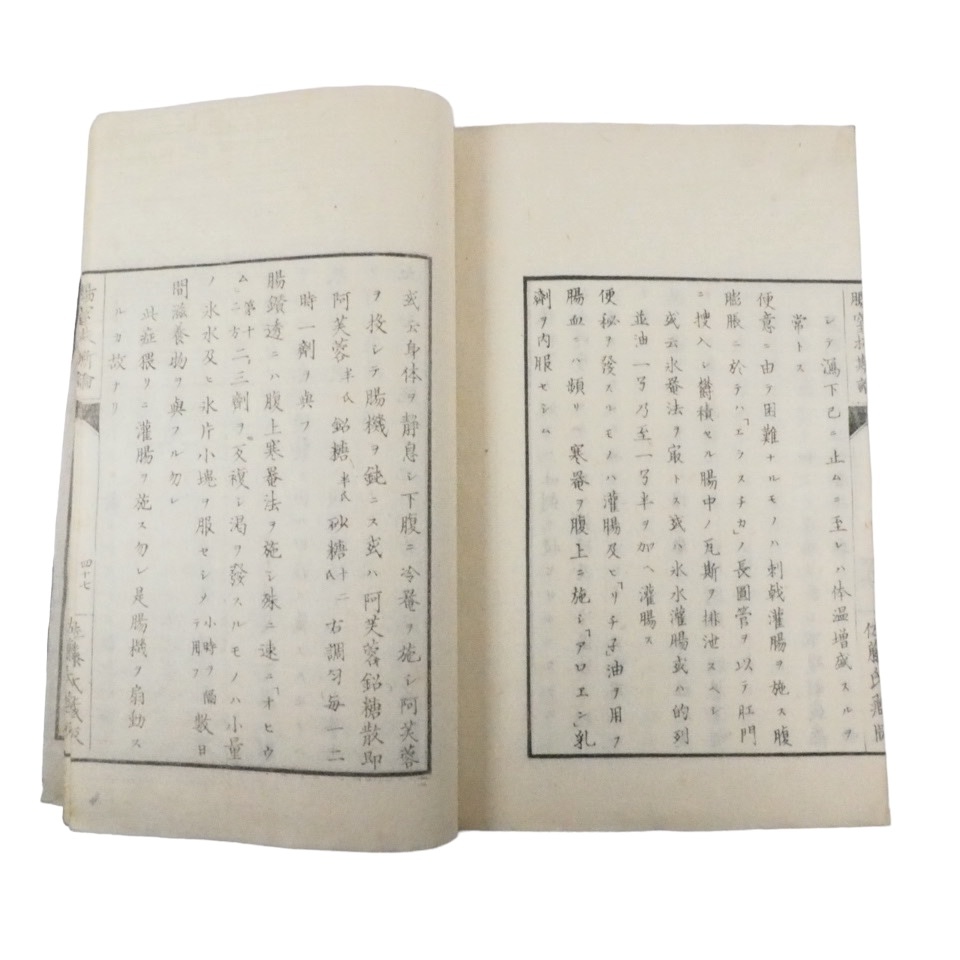 シテ瀉下已ニ止ムニ至レハ体温増盛スルヲ
常トス
便意ニ由テ困難ナルモノハ刺戟灌腸ヲ施ス腹
膨脹ニ於テハ「エラスチカ」ノ長圓管ヲ以テ肛門
ニ挿入シ欝積セル腸中ノ瓦斯ヲ排泄スヘシ
或云氷罨法ヲ最トス或ハ氷水灌腸或ハ的列
並油一弓乃至一弓半ヲ加ヘ灌腸ス
便秘ヲ發スルモノハ灌腸及ヒ「リチ子油ヲ用フ
腸血ニハ頻リニ寒罨ヲ腹上ニ施シ「アロエン」乳
劑ヲ内服セシム
佐藤氏蔵版
或云身体ヲ静息シ下腹ニ冷罨ヲ施シ阿芙蓉
ヲ投シテ腸機ヲ鈍ニス或ハ阿芙蓉鉛糖散即
阿芙蓉半氏鉛糖半氏砂糖十二氏右調匀毎一二
時一劑ヲ與フ
腸鑽透ニハ腹上寒罨法ヲ施シ殊ニ速ニ「オヒウ
ム」第十二方二三劑ヲ反複シ渇ヲ發スルモノハ小量
ノ氷水及ヒ氷片小塊ヲ服セシメ小時ヲ隔テ用フ數日
間滋養物ヲ與フル勿レ
此症猥リニ灌腸ヲ施ス勿レ是腸機ヲ扇動ス
ルカ故ナリ
四十七
佐藤氏蔵版